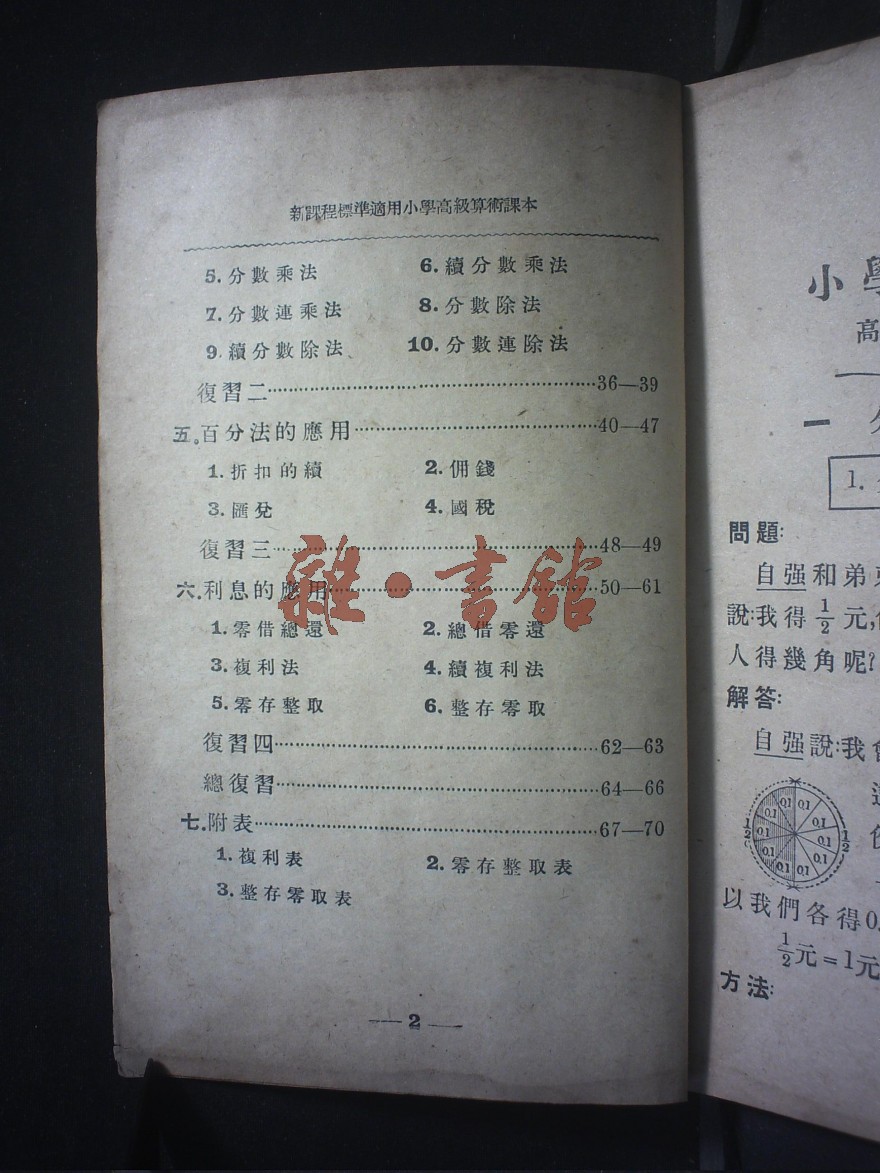 新課程標準適用小學高級算術課本
5. 分數乘法 6. 續分數乘法
7. 分數連乘法 8. 分數除法
9. 續分數除法 10. 分數連除法
復習二 36—39
五。百分法的應用 40—47
1. 折扣的續 2. 佣錢
3. 匯兌 4. 國稅
復習三 48—49
六. 利息的應用 50—61
1. 零借總還 2. 總借零還
3. 複利法 4. 續複利法
5. 零存整取 6. 整存零取
復習四 62—63
總復習 64—66
七. 附表 67—70
1. 複利表 2. 零存整取表
3. 整存零取表
— 2 —
雜·書館
小學
高
一
1.
問題:
自强和弟
說:我得½元,
人得幾角呢?
解答:
自强說:我
½ 0.1 0.1 0.1 0.1 0.1 0.1 0.1 0.1 0.1 0.1 ½
以我們各得0.
½元=1元
方法: